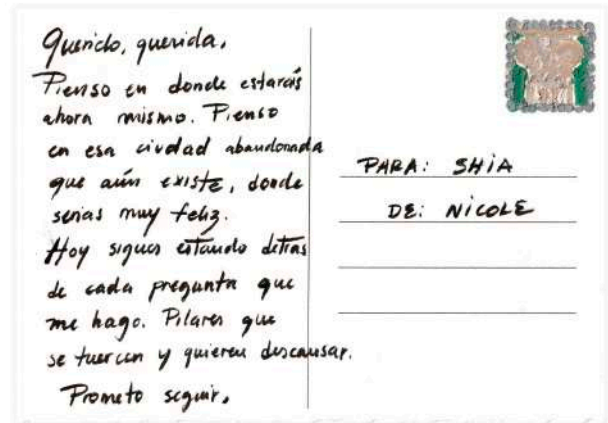 Querido, querida,
Pienso en donde estarás
ahora mismo. Pienso
en esa ciudad abandonada
que aún existe, donde
serias muy feliz.
Hoy sigues estando detras
de cada pregunta que
me hago. Pilares que
se tuercen y quieren descansar.
Prometo seguir.
PARA: SHIA
DE: NICOLE